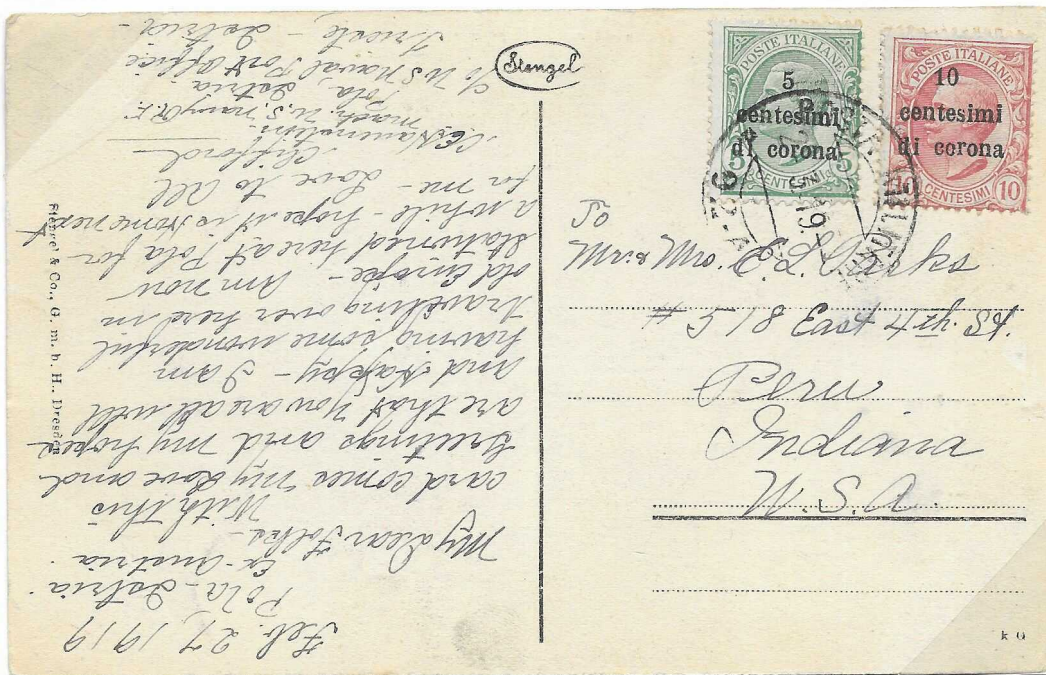 Feb. 27, 1919
Pola - Istria
Ex-Austria.
My Dear Folks -
With this
card comes my love and
greetings and my hopes
are that you are all well
and Happy - I am
having some wonderful
traveling over here in
old Europe - Am now
stationed here at Pola for
a while - hope it is home next
for me - Love to all
Clifford -
Mach. U.S Navy
Pola, Istria
c/o U S Naval Post Office
Trieste - Istria -
Stengel
Stengel & Co., G. m. b. H., Dresden
POSTE ITALIANE
5
centesimi
di corona
5 5
CENTESIMI
POSTE ITALIANE
10
centesimi
di corona
10 10
CENTESIMI
To
Mr. & Mrs. E. L.
# 518 East 4th St.
Peru
Indiana
U.S.A.